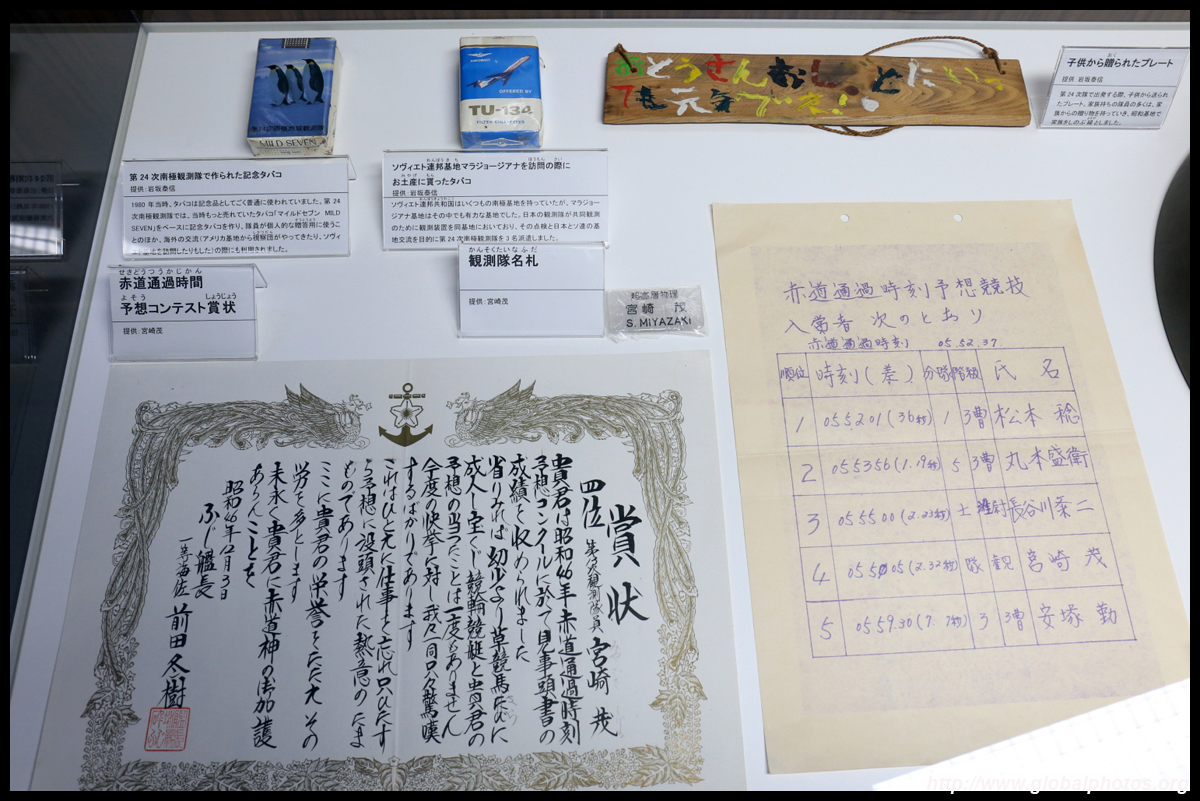 第24次南極観測隊
MILD SEVEN
AEROFLOT
OFFERED BY
TU-134
FILTER CIGARETTES
おとうさんおしごとたいへん
でも元気でネ!
子供から贈られたプレート
提供:岩坂泰信
第24次隊で出発する際、子供から送られ
たプレート。家族持ちの隊員の多くは、家
族からの贈り物を持っていき、昭和基地で
家族をしのぶ縁としました。
第24次南極観測隊で作られた記念タバコ
提供:岩坂泰信
1980年当時、タバコは記念品としてごく普通に使われていました。第24
次南極観測隊では、当時もっと売れていたタバコ「マイルドセブン MILD
SEVEN」をベースに記念タバコを作り、隊員が個人的な贈答用に使うこ
とのほか、海外の交流(アメリカ基地から視察団がやってきたり、ソヴィ
ソヴィエト連邦基地マラジョージアナを訪問の際に
お土産に買ったタバコ
提供:岩坂泰信
ソヴィエト連邦共和国はいくつもの南極基地を持っていたが、マラジョー
ジアナ基地はその中でも有力な基地でした。日本の観測隊が共同観測
のために観測装置を同基地においており、その点検と日本とソ連の基
地交流を目的に第24次南極観測隊を3名派遣しました。
せきどうつうかじかん
赤道通過時間
よそう しょうじょう
予想コンテスト賞状
提供:宮崎茂
かんそくたいなふだ
観測隊名札
提供:宮崎茂
超高層物理
宮崎 茂
S. MIYAZAKI
賞状
四位 宮崎 茂
貴君は昭和46年赤道通過時刻
予想コンクールに於て見事頭書の
成績を収められました
省りみれば 幼少より草競馬ならびに
成人し宝くじ競輪競艇と貴君の
予想の当つたことは一度もありません
今度の快挙に対し我々一同只々驚嘆
するばかりであります
これはひとえに仕事を忘れ只ひたす
ら予想に没頭された熱意のたま
ものであります
ここに貴君の栄誉をたたえ その
労を多とします
末永く貴君に赤道神の御加護
あらんことを
昭和46年12月3日
ふじ艦長
一等海佐 前田冬樹
赤道通過時刻予想競技
入賞者 次のとおり
赤道通過時刻 05.52.37
順位 時刻(差) 分隊 階級 氏名
1 055201(36秒) 1 3曹 松本 稔
2 055356(1.19秒) 5 3曹 丸本盛衛
3 055500(2.23秒) 士 長谷川栄二
4 055505(2.32秒) 隊 観 宮崎 茂
5 0559.30(7.7秒) 3 3曹 安塚 勤
http://www.globalphotos.org